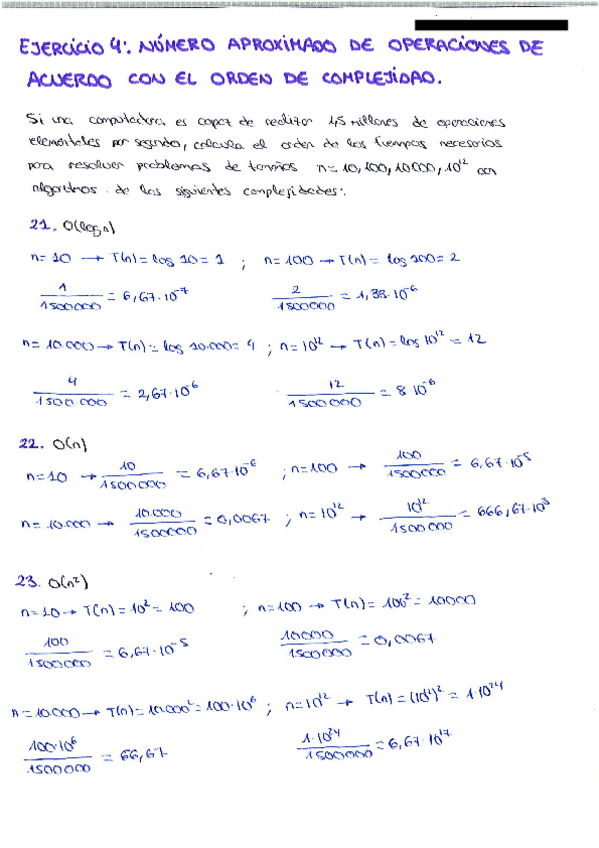 EJERCICIO 4: NÚMERO APROXIMADO DE OPERACIONES DE
ACUERDO CON EL ORDEN DE COMPLEJIDAD.
Si una computadora es capaz de realizar 1,5 millones de operaciones
elementales por segundo, calcula el orden de los tiempos necesarios
para resolver problemas de tamaños n=10, 100, 10000, 10^12 con
algoritmos de las siguientes complejidades:
21. O(log n)
n=10 → T(n) = log 10 = 1 ; n=100 → T(n) = log 100 = 2
1/1500000 = 6,67·10^-7 2/1500000 = 1,33·10^-6
n=10.000 → T(n) = log 10.000 = 4 ; n=10^12 → T(n) = log 10^12 = 12
4/1500.000 = 2,67·10^-6 12/1500000 = 8·10^-6
22. O(n)
n=10 → 10/1500000 = 6,67·10^-6 ; n=100 → 100/1500000 = 6,67·10^-5
n=10.000 → 10.000/1500000 = 0,0067 ; n=10^12 → 10^12/1500000 = 666,67·10^3
23. O(n²)
n=10 → T(n) = 10² = 100 ; n=100 → T(n) = 100² = 10000
100/1500000 = 6,67·10^-5 10000/1500000 = 0,0067
n=10.000 → T(n) = 10.000² = 100·10^6 ; n=10^12 → T(n) = (10^12)² = 1·10^24
100·10^6/1500000 = 66,67 1·10^24/1500000 = 6,67·10^17